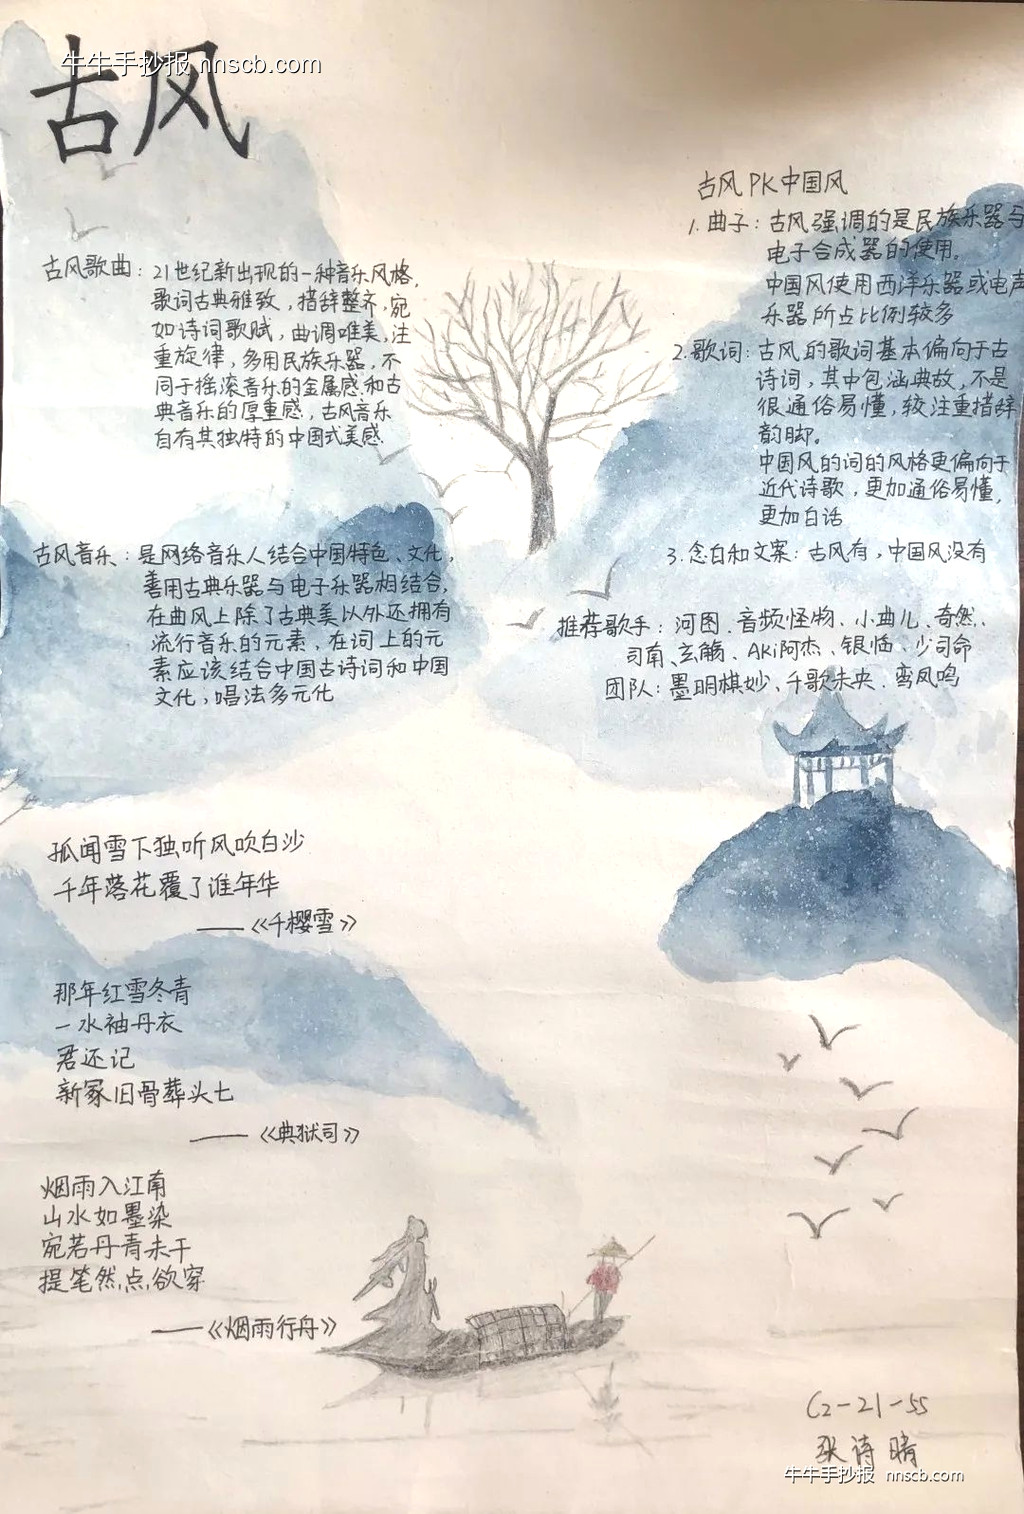 牛牛手抄报 nnscb.com
古风
古风歌曲：21世纪新出现的一种音乐风格，
歌词古典雅致，措辞整齐，宛
如诗词歌赋，曲调唯美，注
重旋律，多用民族乐器，不
同于摇滚音乐的金属感和古
典音乐的厚重感，古风音乐
自有其独特的中国式美感.
古风音乐：是网络音乐人结合中国特色、文化，
善用古典乐器与电子乐器相结合，
在曲风上除了古典美以外还拥有
流行音乐的元素，在词上的元
素应该结合中国古诗词和中国
文化，唱法多元化
古风PK中国风
1.曲子：古风强调的是民族乐器与
电子合成器的使用。
中国风使用西洋乐器或电声
乐器所占比例较多
2.歌词：古风的歌词基本偏向于古
诗词，其中包涵典故，不是
很通俗易懂，较注重措辞
韵脚。
中国风的词的风格更偏向于
近代诗歌，更加通俗易懂，
更加白话
3.念白和文案：古风有，中国风没有
推荐歌手：河图、音频怪物、小曲儿、奇然、
司南、玄觞、AKi阿杰、银临、少司命
团队：墨明棋妙、千歌未央、鸾凤鸣
孤闻雪下独听风吹白沙
千年落花覆了谁年华
——《千樱雪》
那年红雪冬青
一水袖丹衣
君还记
新冢旧骨葬头七
——《典狱司》
烟雨入江南
山水如墨染
宛若丹青未干
提笔然点欲穿
——《烟雨行舟》
C2-21-55
张诗晴
牛牛手抄报 nnscb.com